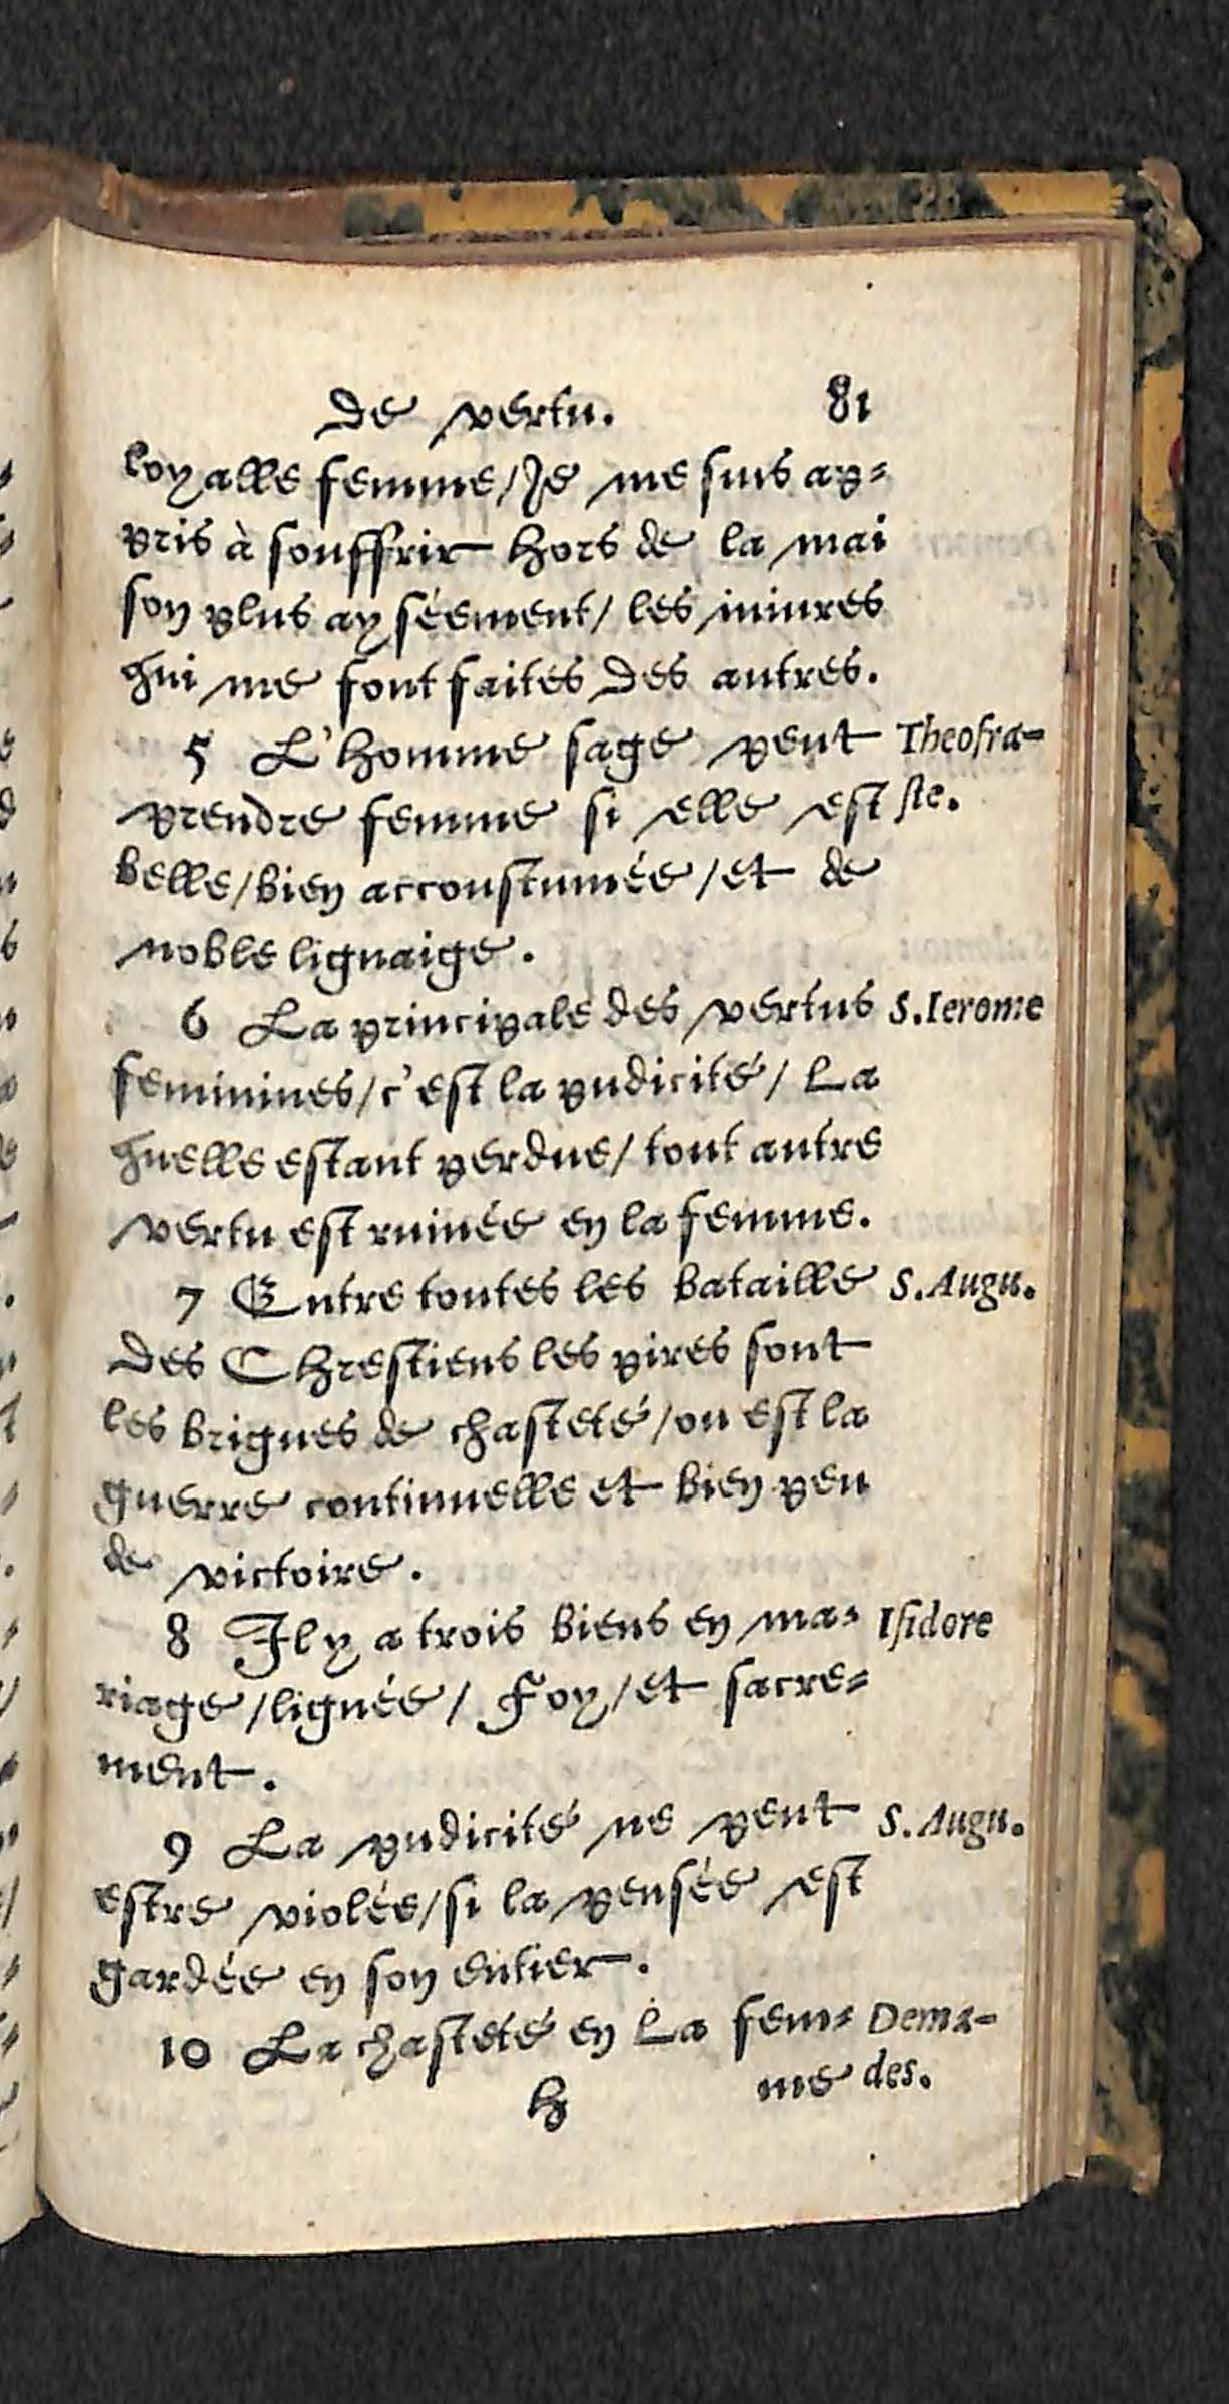 de vertu. 81
loyalle femme/Je me suis ap=
pris à souffrir hors de la mai
son plus ayséement/ les iniures
qui me sont faites des autres.
5 L'homme sage peut Theofra-
prendre femme si elle est ste.
belle/bien accoustumée/et de
noble lignaige.
6 La principale des vertus S.Ierome
feminines/c'est la pudicité/ La
quelle estant perdue/ tout autre
vertu est ruinée en la femme.
7 Entre toutes les bataille S.Augu.
des Chrestiens les pires sont
les brigues de chasteté/ou est la
guerre continuelle et bien peu
de victoire.
8 Il y a trois biens en ma= Isidore
riage/lignée/ Foy/et sacre=
ment.
9 La pudicité ne peut S.Augu.
estre violée/si la pensée est
gardée en son entier.
10 La chasteté en La fem= Dema-
h me des.